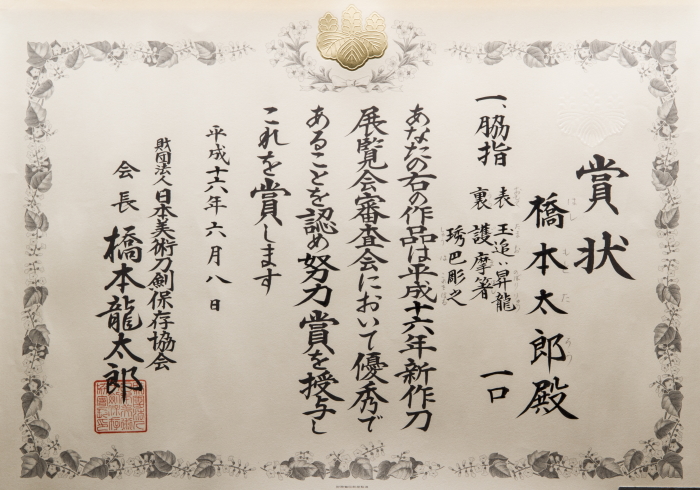 賞状
橋本太郎殿
はしもとたろう
一、脇指
一口
表 玉追い昇龍
裏 護摩箸
琇巴彫之
あなたの右の作品は平成十六年新作刀
展覧会審査会において優秀で
あることを認め努力賞を授与し
これを賞します
平成十六年六月八日
財団法人日本美術刀剣保存協会
会長 橋本龍太郎